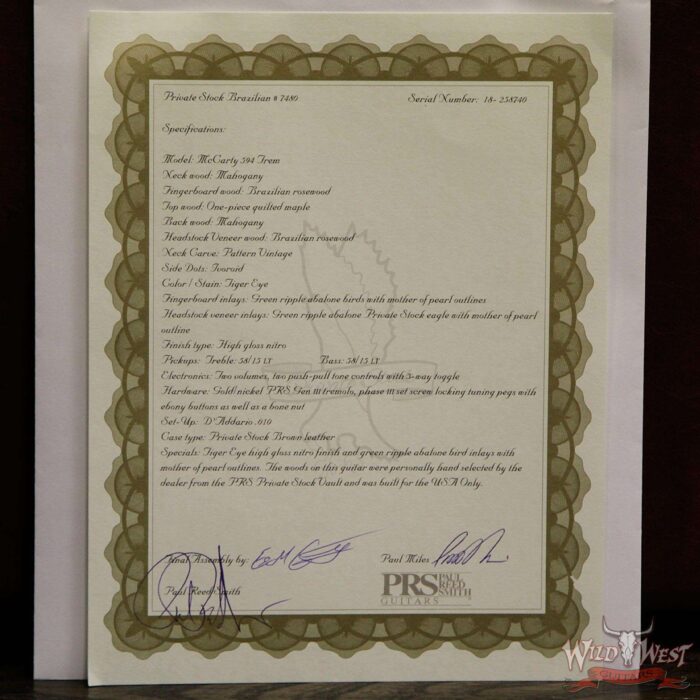 Private Stock Brazilian # 7480 Serial Number: 18- 258740
Specifications:
Model: McCarty 594 Trem
Neck wood: Mahogany
Fingerboard wood: Brazilian rosewood
Top wood: One-piece quilted maple
Back wood: Mahogany
Headstock Veneer wood: Brazilian rosewood
Neck Carve: Pattern Vintage
Side Dots: Ivoroid
Color / Stain: Tiger Eye
Fingerboard inlays: Green ripple abalone birds with mother of pearl outlines
Headstock veneer inlays: Green ripple abalone Private Stock eagle with mother of pearl
outline
Finish type: High gloss nitro
Pickups: Treble: 58/15 LT Bass: 58/15 LT
Electronics: Two volumes, two push-pull tone controls with 3-way toggle
Hardware: Gold/nickel PRS Gen III tremolo, phase III set screw locking tuning pegs with
ebony buttons as well as a bone nut
Set-Up: D'Addario .010
Case type: Private Stock Brown leather
Specials: Tiger Eye high gloss nitro finish and green ripple abalone bird inlays with
mother of pearl outlines. The woods on this guitar were personally hand selected by the
dealer from the PRS Private Stock Vault and was built for the USA Only.
Final Assembly by: Paul Miles
Paul Reed Smith
PRS PAUL REED SMITH
GUITARS
WILD WEST
GUITARS